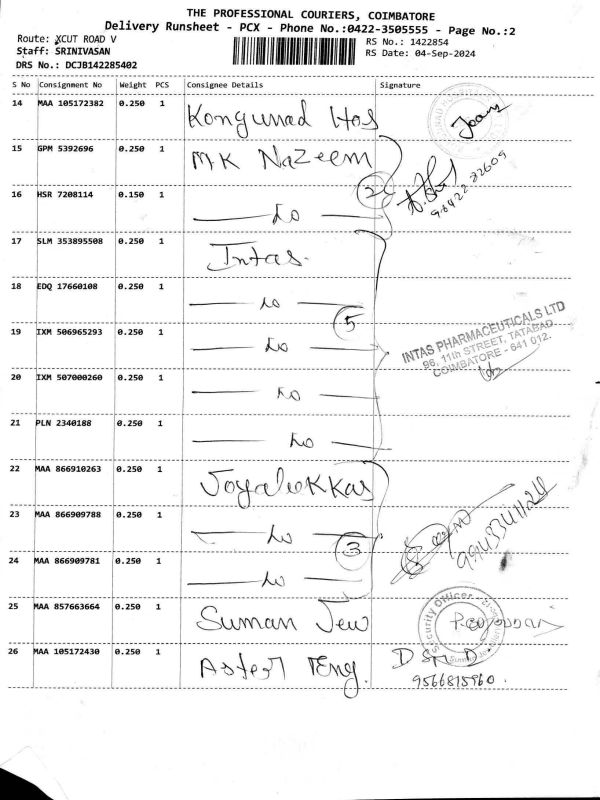 THE PROFESSIONAL COURIERS, COIMBATORE
Delivery Runsheet - PCX - Phone No.:0422-3505555 - Page No.:2
Route: XCUT ROAD V
RS No.: 1422854
Staff: SRINIVASAN
RS Date: 04-Sep-2024
DRS No.: DCJB142285402
S No Consignment No Weight PCS Consignee Details Signature
14 MAA 105172382 0.250 1 Kongunad Hos
15 GPM 5392696 0.250 1 MK Nazeem
2
16 HSR 7208114 0.150 1
17 SLM 353895508 0.250 1 Intas
18 EDQ 17660108 0.250 1
5
19 IXM 506965293 0.250 1
INTAS PHARMACEUTICALS LTD
96, 11th STREET, TATABAD
COIMBATORE - 641 012.
20 IXM 507000260 0.250 1
21 PLN 2340188 0.250 1
22 MAA 866910263 0.250 1 Joyalukkas
23 MAA 866909788 0.250 1
3
24 MAA 866909781 0.250 1
25 MAA 857663664 0.250 1 Suman Jew
Security Officer
26 MAA 105172430 0.250 1 Aster Eng.
9566815960.